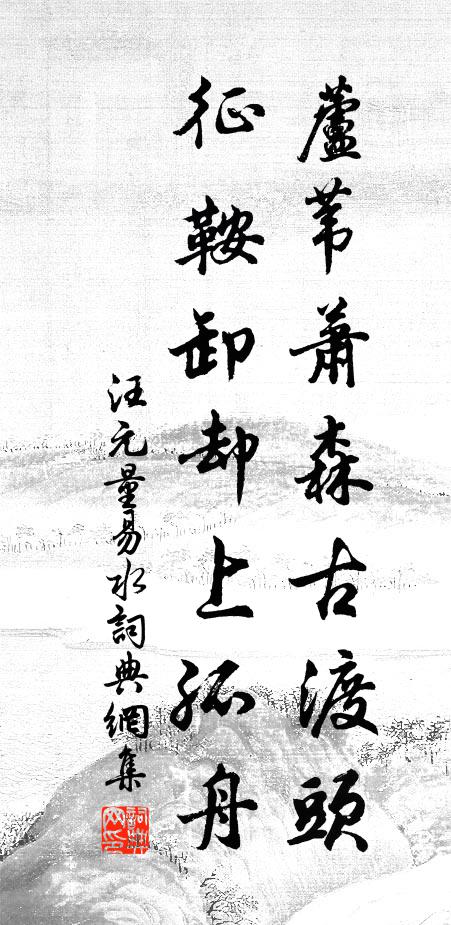 蘆苇蕭森古渡頭
征鞍卸却上孤舟
汪元量易水詞典網集